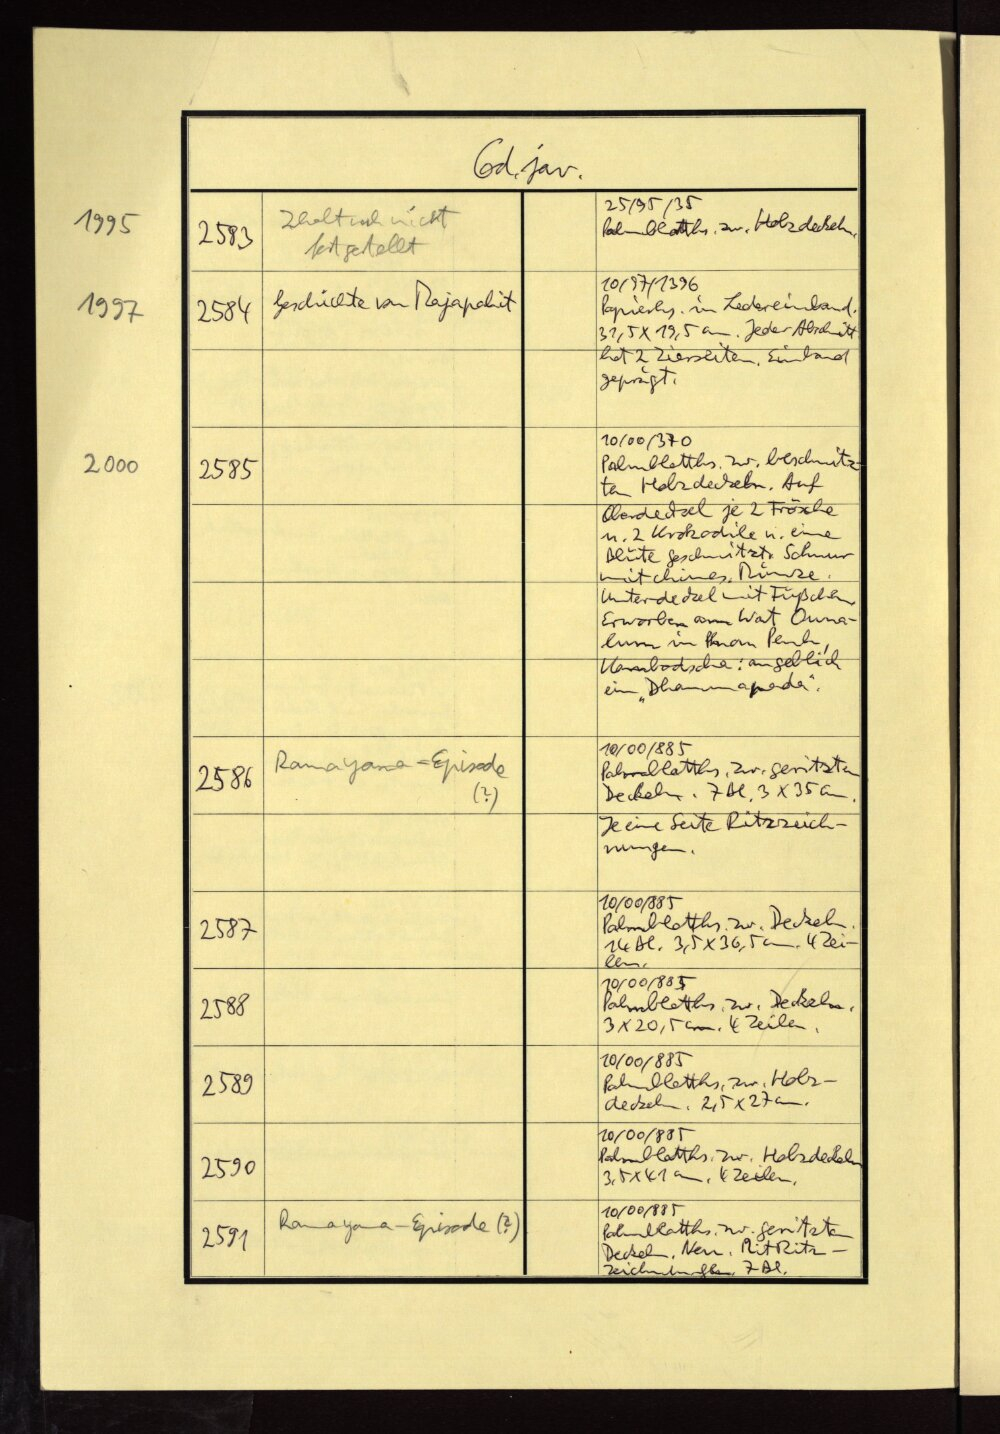 Cod. jav.
1995
2583
Inhalt noch nicht
festgestellt
25/95/35
Palmblatths. zw. Holzdeckeln.
1997
2584
Geschichte von Majapahit
10/97/1396
Papierhs. in Ledereinband.
31,5 x 19,5 cm. Jeder Abschnitt
hat 2 Zierseiten. Einband
geprägt.
2000
2585
10/00/370
Palmblatths. zw. beschnitz-
ten Holzdeckeln. Auf
Oberdeckel je 2 Frösche
u. 2 Krokodile u. eine
Blüte geschnitzt. Schnur
mit chines. Münze.
Unterdeckel mit Füßchen.
Erworben am Wat Ouna-
lum in Phnom Penh,
Kambodscha: angeblich
ein „Dhammapada".
2586
Ramayana-Episode
(?)
10/00/885
Palmblatths. zw. geritzten
Deckeln. 7 Bl. 3 x 35 cm.
Je eine Seite Ritzzeich-
nungen.
2587
10/00/885
Palmblatths. zw. Deckeln.
14 Bl. 3,5 x 36,5 cm. 4 Zei-
len.
2588
10/00/885
Palmblatths. zw. Deckeln.
3 x 20,5 cm. 4 Zeilen.
2589
10/00/885
Palmblatths. zw. Holz-
deckeln. 2,5 x 27 cm.
2590
10/00/885
Palmblatths. zw. Holzdeckeln
3,5 x 41 cm. 4 Zeilen.
2591
Ramayana-Episode (?)
10/00/885
Palmblatths. zw. geritzten
Deckeln. Neu. Mit Ritz-
zeichnungen. 7 Bl.